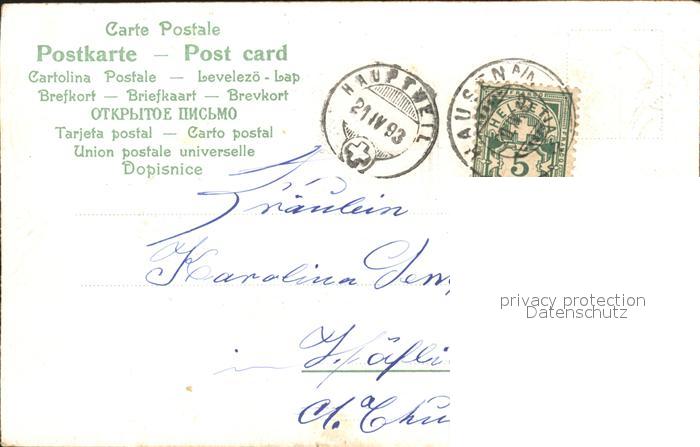 Carte Postale
Postkarte — Post card
Cartolina Postale — Levelezö-Lap
Brefkort — Briefkaart — Brevkort
ОТКРЫТОЕ ПИСЬМО
Tarjeta postal — Carto postal
Union postale universelle
Dopisnice
HAUPTWEIL
21 IV 93
HAUSEN A/A
HELVETIA
5
Fräulein
Karolina
in Häfli
Ct. Thu
privacy protection
Datenschutz